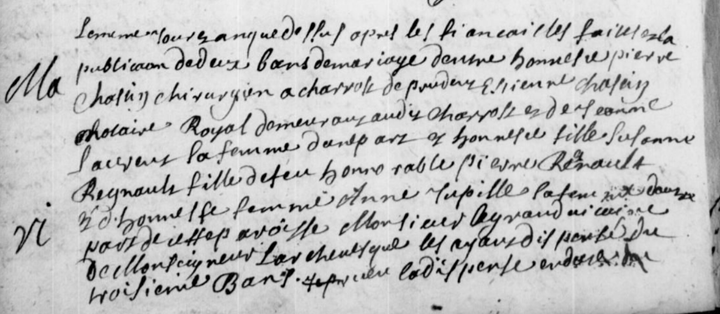 Le mesme jour et an que dessus apres les fiancailles faites et la
Ma
publicaon de deux bans de mariage dentre honneste pierre
Chastin chirurgien a charrost de prudent Estienne Chastin
Notaire Royal demeurant audit Charrost et de Jeanne
la femme dune part et honneste fille Susanne
Reynault fille de feu honnorable pierre Renault
et d'honneste femme Anne Lupille sa femme daultre
vi
part de cette paroisse Monsieur legrand vicaire
De Monseigneur Larchevesque les ayant dispensé du
troisieme Ban. la dispense